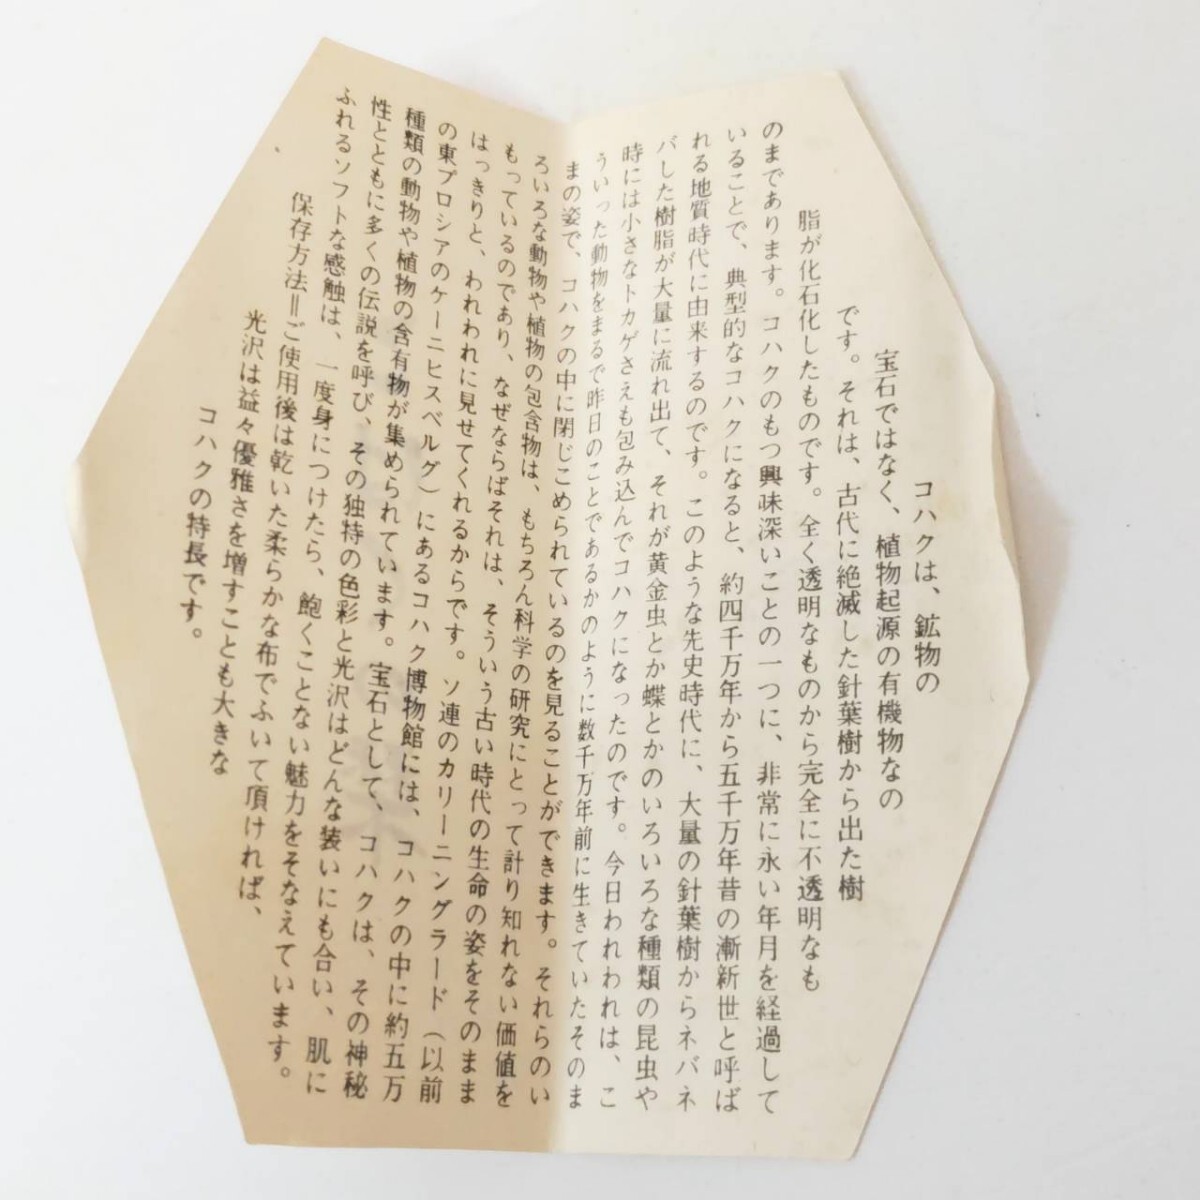 コハクは、鉱物の
宝石ではなく、植物起源の有機物なの
です。それは、古代に絶滅した針葉樹から出た樹
脂が化石化したものです。全く透明なものから完全に不透明なも
のまであります。コハクのもつ興味深いことの一つに、非常に永い年月を経過して
いることで、典型的なコハクになると、約四千万年から五千万年昔の漸新世と呼ば
れる地質時代に由来するのです。このような先史時代に、大量の針葉樹からネバネ
バした樹脂が大量に流れ出て、それが黄金虫とか蝶とかのいろいろな種類の昆虫や
時には小さなトカゲさえも包み込んでコハクになったのです。今日われわれは、こ
ういった動物をまるで昨日のことであるかのように数千万年前に生きていたそのま
まの姿で、コハクの中に閉じこめられているのを見ることができます。それらのい
ろいろな動物や植物の包含物は、もちろん科学の研究にとって計り知れない価値を
もっているのであり、なぜならばそれは、そういう古い時代の生命の姿をそのまま
はっきりと、われわれに見せてくれるからです。ソ連のカリーニングラード(以前
の東プロシアのケーニヒスベルグ)にあるコハク博物館には、コハクの中に約五万
種類の動物や植物の含有物が集められています。宝石として、コハクは、その神秘
性とともに多くの伝説を呼び、その独特の色彩と光沢はどんな装いにも合い、肌に
ふれるソフトな感触は、一度身につけたら、飽くことない魅力をそなえています。
保存方法＝ご使用後は乾いた柔らかな布でふいて頂ければ、
光沢は益々優雅さを増すことも大きな
コハクの特長です。